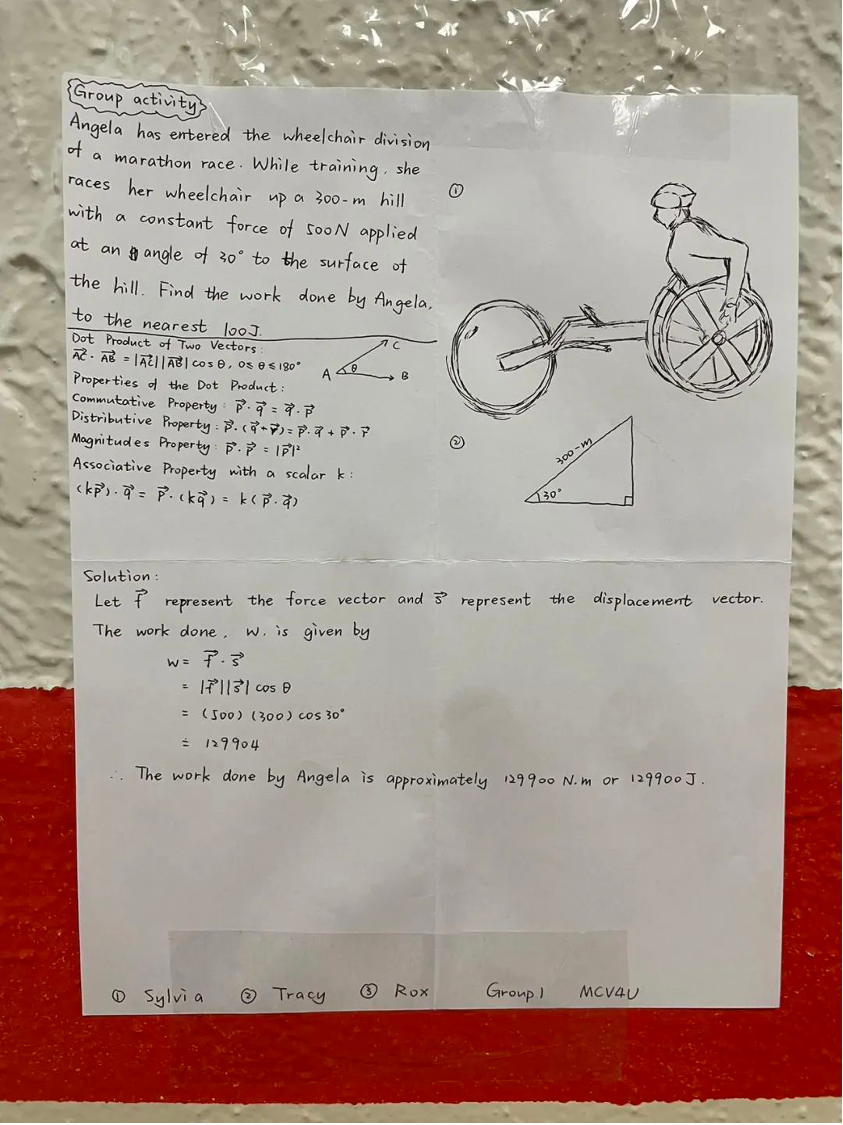 Group activity
Angela has entered the wheelchair division
of a marathon race. While training, she
races her wheelchair up a 300-m hill
with a constant force of 500N applied
at an angle of 30° to the surface of
the hill. Find the work done by Angela,
to the nearest 100J.
Dot Product of Two Vectors:
A⃗C⃗ · A⃗B⃗ = |A⃗C⃗||A⃗B⃗| cos θ, 0≤ θ ≤ 180°
Properties of the Dot Product:
Commutative Property: p⃗ · q⃗ = q⃗ · p⃗
Distributive Property: p⃗ · (q⃗ + r⃗) = p⃗ · q⃗ + p⃗ · r⃗
Magnitudes Property: p⃗ · p⃗ = |p⃗|²
Associative Property with a scalar k:
(kp⃗) · q⃗ = p⃗ · (kq⃗) = k(p⃗ · q⃗)
A θ C B
①
②
300-m
30°
Solution:
Let f⃗ represent the force vector and s⃗ represent the displacement vector.
The work done, W, is given by
W = f⃗ · s⃗
= |f⃗||s⃗| cos θ
= (500)(300) cos 30°
≐ 129904
∴ The work done by Angela is approximately 129900 N.m or 129900J.
① Sylvia ② Tracy ③ Rox Group 1 MCV4U